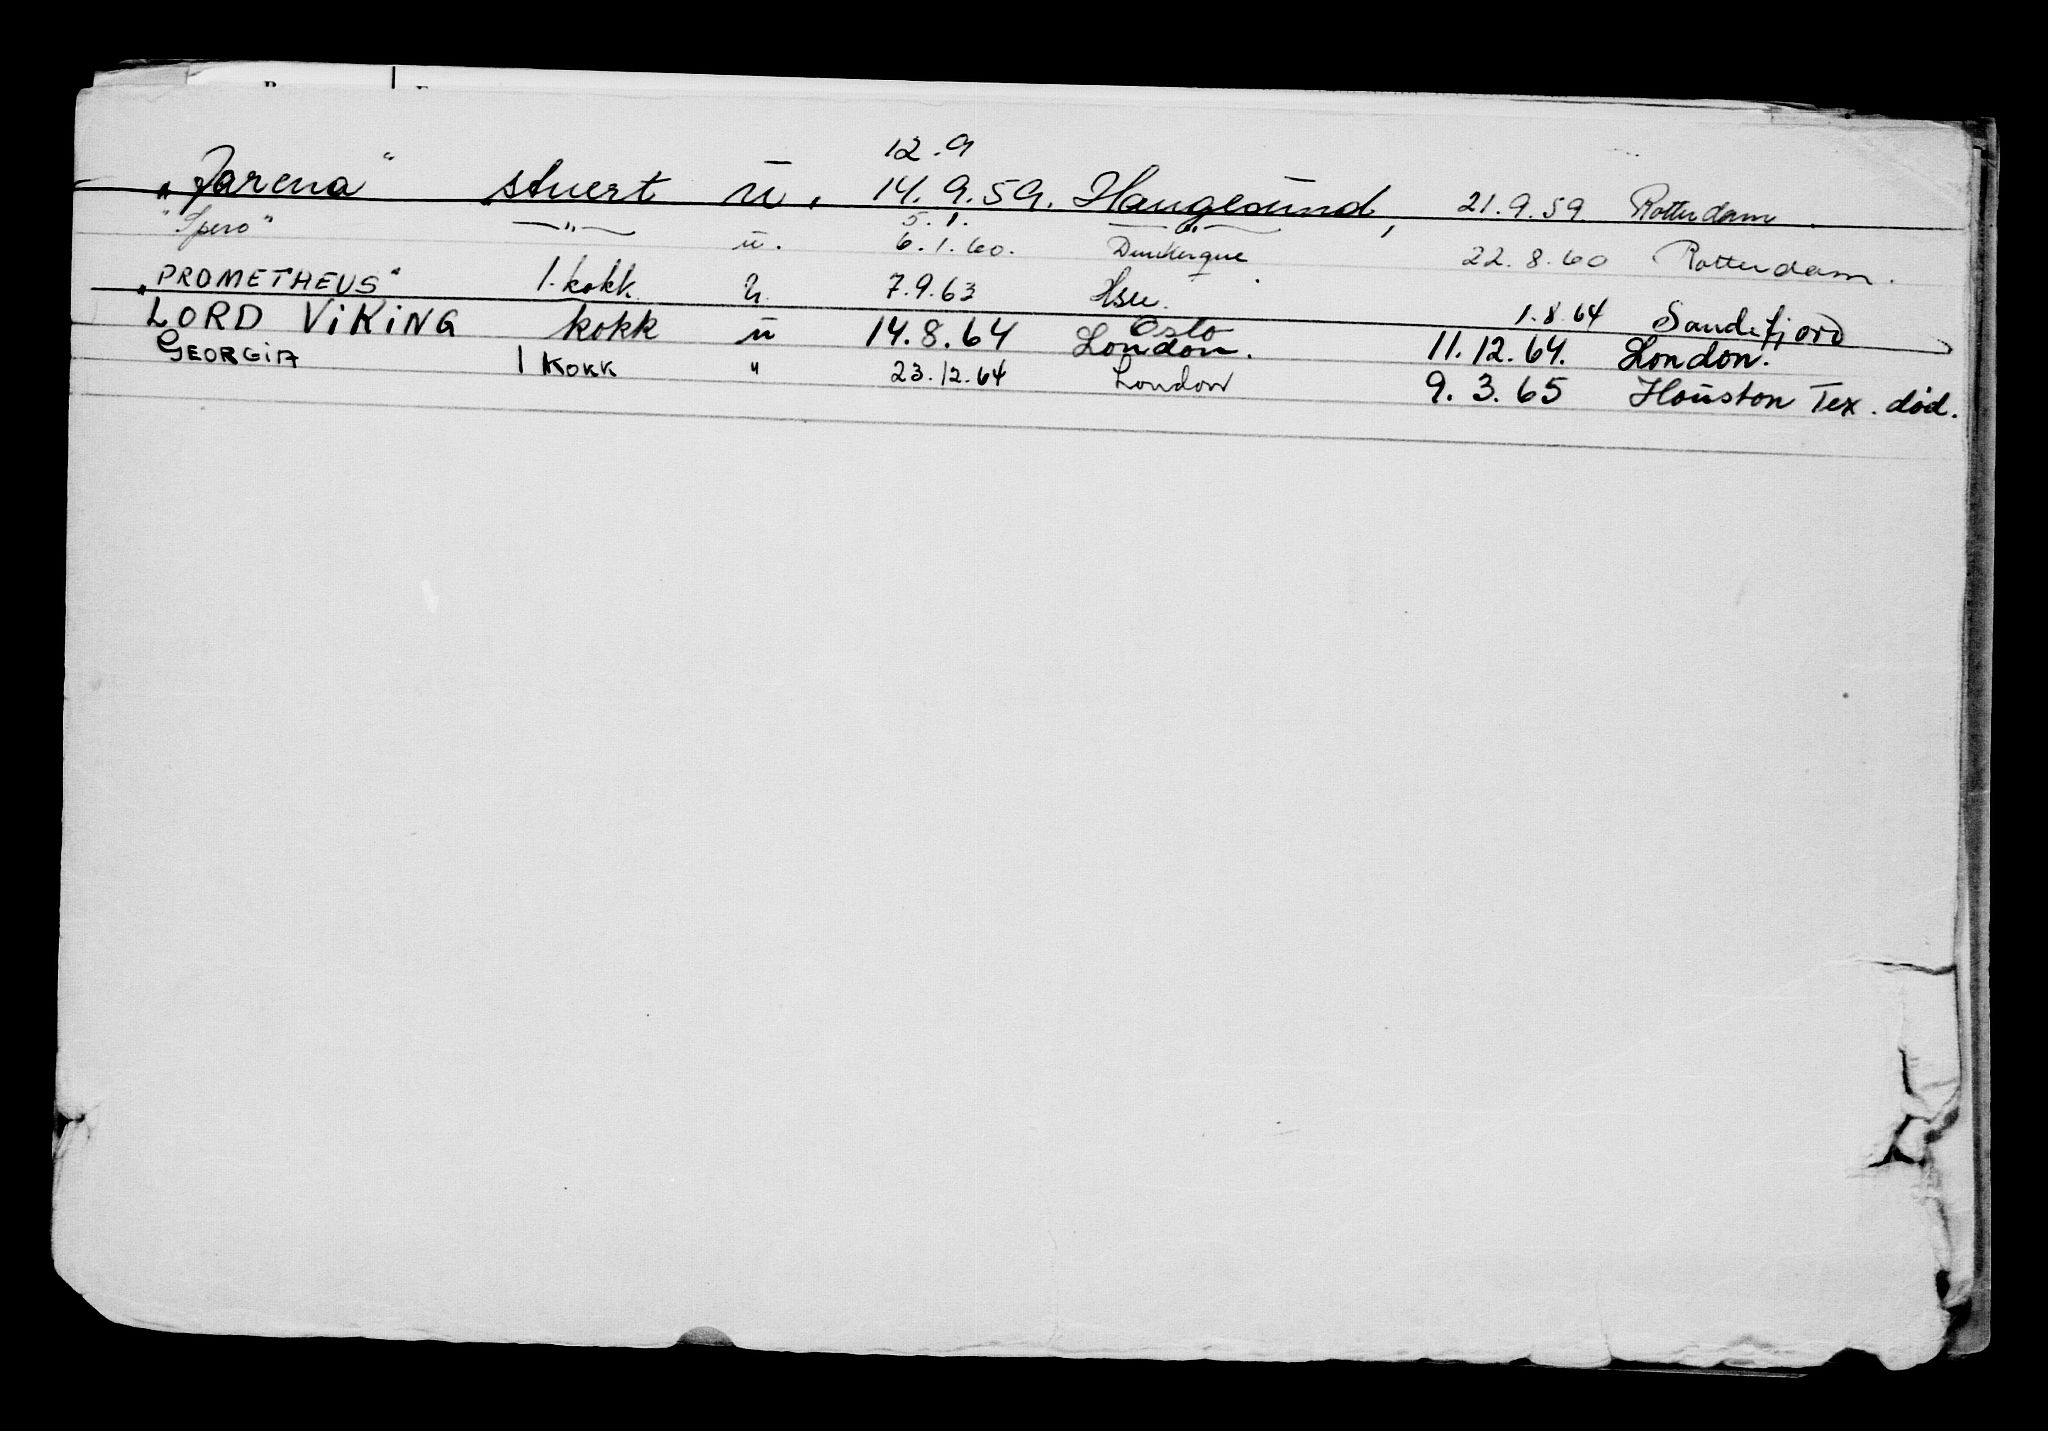 12.9
"Jarena" stuert u. 14.9.59. Haugesund, 21.9.59. Rotterdam
5.1. —"—
"Spero" —"— u. 6.1.60. Dunkerque 22.8.60 Rotterdam.
"PROMETHEUS" 1. kokk u. 7.9.63 Hsu. 1.8.64 Sandefjord
Oslo
LORD ViKiNG kokk u 14.8.64 London. 11.12.64. London.
GEORGiA 1 KOKK " 23.12.64 London 9.3.65 Houston Tex. død.